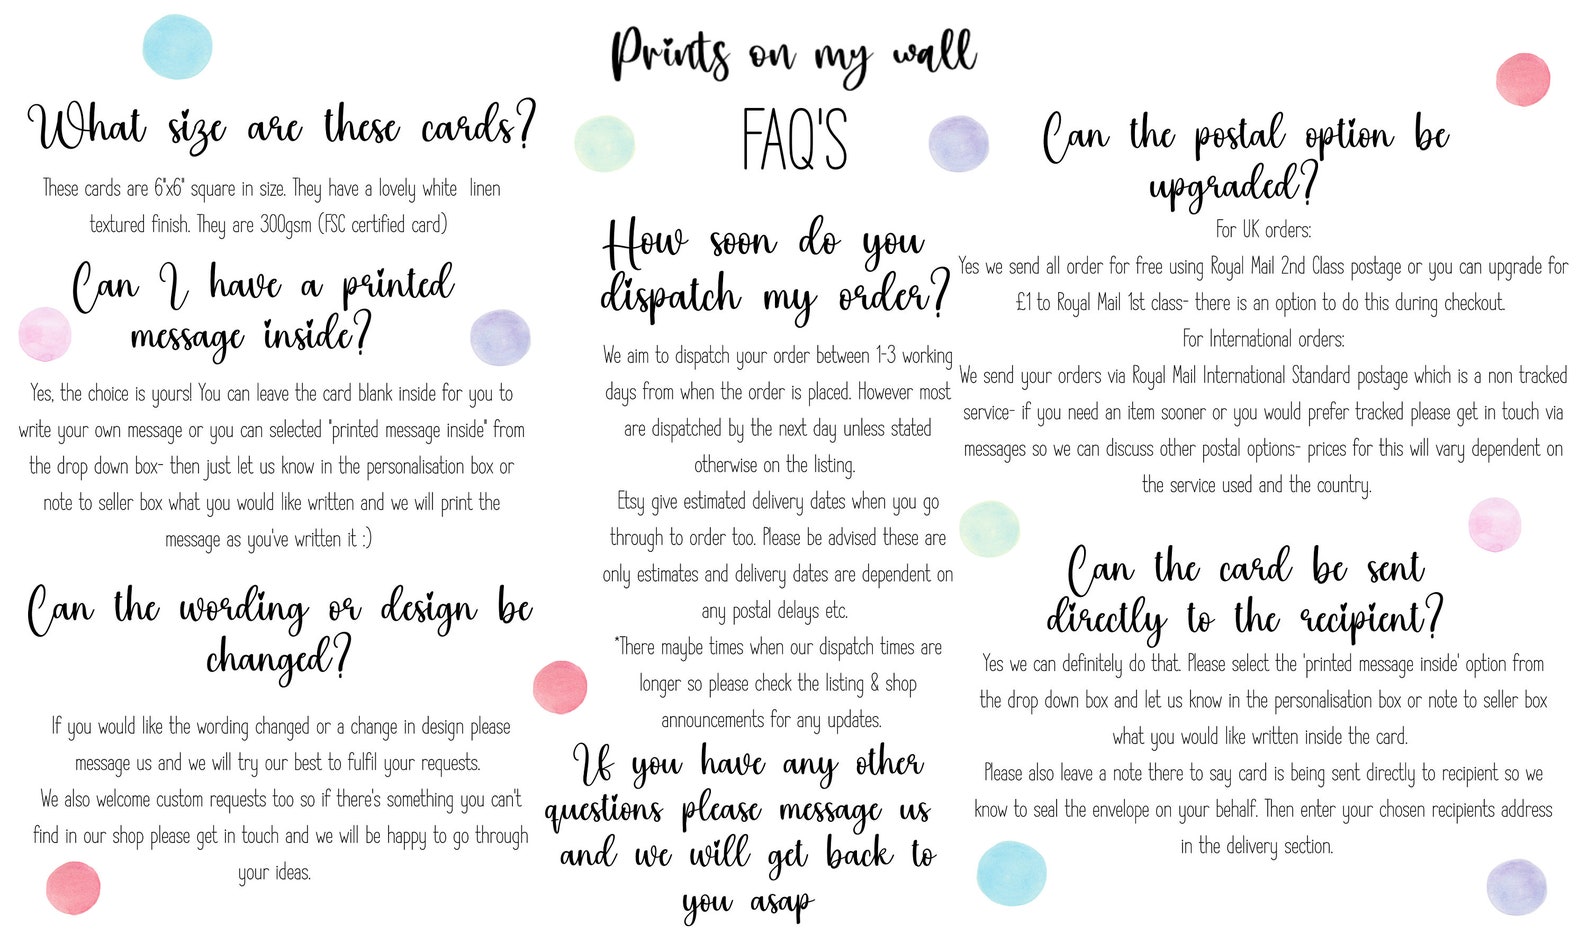 Prints on my wall
FAQ'S
What size are these cards?
These cards are 6"x6" square in size. They have a lovely white linen
textured finish. They are 300gsm (FSC certified card)
Can I have a printed
message inside?
Yes, the choice is yours! You can leave the card blank inside for you to
write your own message or you can selected "printed message inside" from
the drop down box- then just let us know in the personalisation box or
note to seller box what you would like written and we will print the
message as you've written it :)
Can the wording or design be
changed?
If you would like the wording changed or a change in design please
message us and we will try our best to fulfil your requests.
We also welcome custom requests too so if there's something you can't
find in our shop please get in touch and we will be happy to go through
your ideas.
How soon do you
dispatch my order?
We aim to dispatch your order between 1-3 working
days from when the order is placed. However most
are dispatched by the next day unless stated
otherwise on the listing.
Etsy give estimated delivery dates when you go
through to order too. Please be advised these are
only estimates and delivery dates are dependent on
any postal delays etc.
*There maybe times when our dispatch times are
longer so please check the listing & shop
announcements for any updates.
If you have any other
questions please message us
and we will get back to
you asap
Can the postal option be
upgraded?
For UK orders:
Yes we send all order for free using Royal Mail 2nd Class postage or you can upgrade for
£1 to Royal Mail 1st class- there is an option to do this during checkout.
For International orders:
We send your orders via Royal Mail International Standard postage which is a non tracked
service- if you need an item sooner or you would prefer tracked please get in touch via
messages so we can discuss other postal options- prices for this will vary dependent on
the service used and the country.
Can the card be sent
directly to the recipient?
Yes we can definitely do that. Please select the 'printed message inside' option from
the drop down box and let us know in the personalisation box or note to seller box
what you would like written inside the card.
Please also leave a note there to say card is being sent directly to recipient so we
know to seal the envelope on your behalf. Then enter your chosen recipients address
in the delivery section.